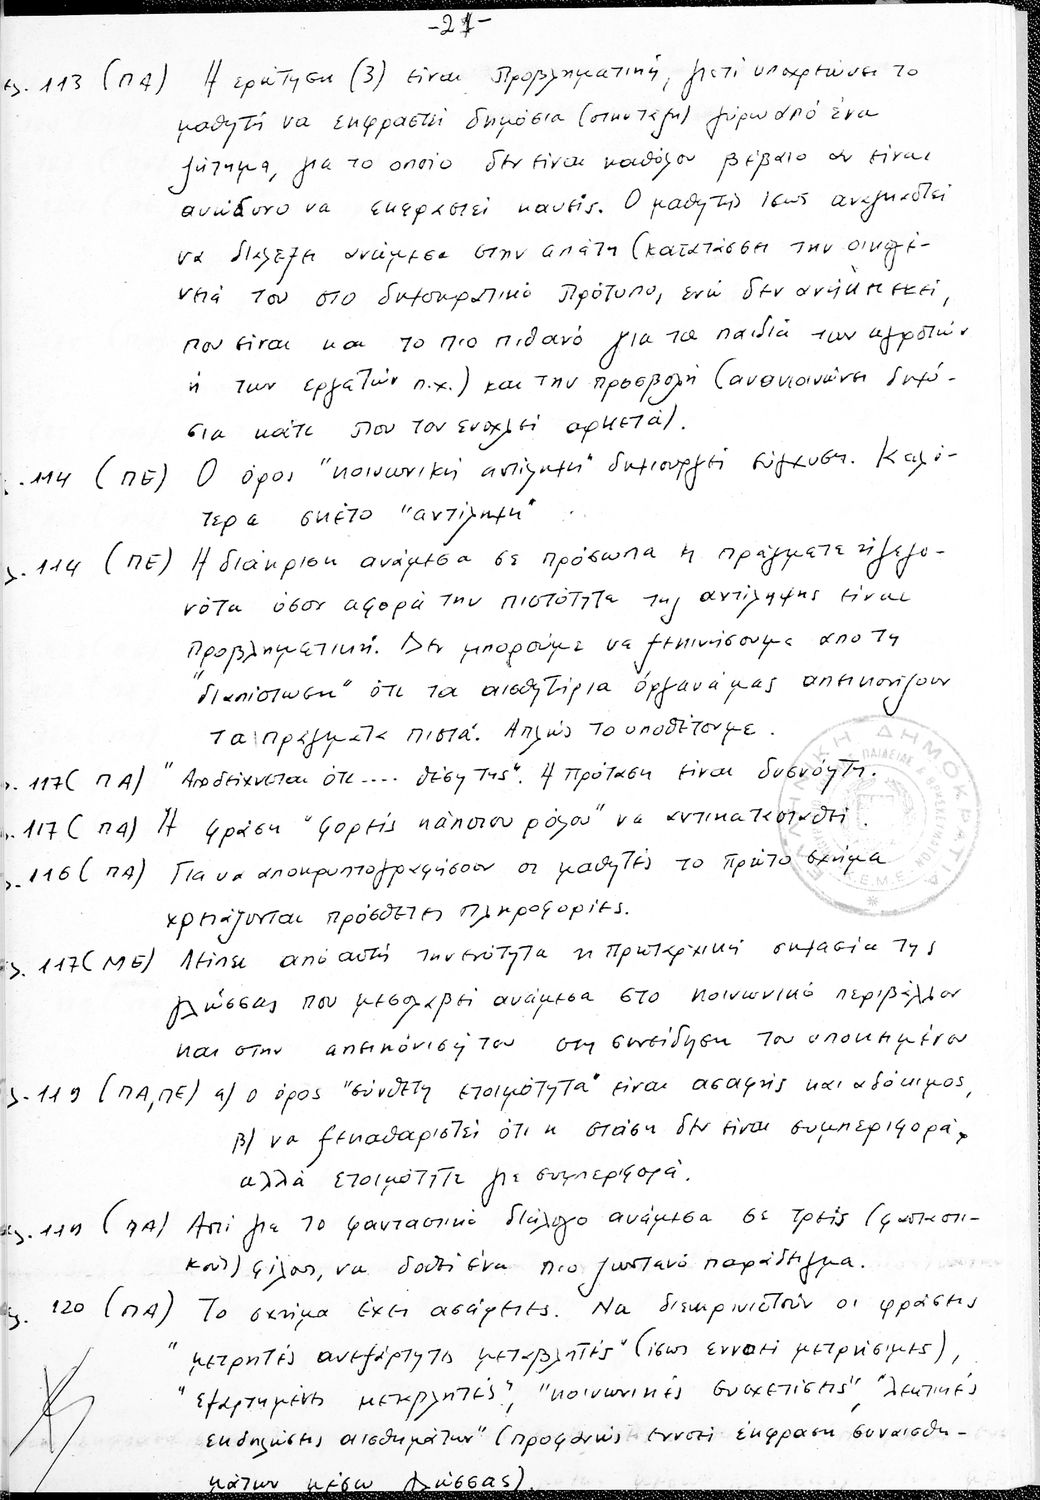 -21-
σελ. 113 (ΠΑ) Η ερώτηση (3) είναι προβληματική, γιατί υποχρεώνει το
μαθητή να εκφραστεί δημόσια (στην τάξη) γύρω από ένα
ζήτημα, για το οποίο δεν είναι καθόλου βέβαιο αν είναι
ανώδυνο να εκφραστεί κανείς. Ο μαθητής ίσως αναγκαστεί
να διαλέξει ανάμεσα στην απάτη (κατατάσσει την οικογέ-
νειά του στο δημοκρατικό πρότυπο, ενώ δεν ανήκει εκεί,
που είναι και το πιο πιθανό για τα παιδιά των αγροτών
ή των εργατών π.χ.) και την προσβολή (ανακοινώνει δημό-
σια κάτι που τον ενοχλεί αρκετά).
. 114 (ΠΕ) Ο όρος "κοινωνική αντίληψη" δημιουργεί σύγχυση. Καλύ-
τερα σκέτο "αντίληψη"
λ. 114 (ΠΕ) Η διάκριση ανάμεσα σε πρόσωπα ή πράγματα ή γεγο-
νότα όσον αφορά την πιστότητα της αντίληψης είναι
προβληματική. Δεν μπορούμε να ξεκινήσουμε απο τη
"διαπίστωση" ότι τα αισθητήρια όργανά μας απεικονίζουν
τα πράγματα πιστά. Απλώς το υποθέτουμε.
λ. 117 (ΠΑ) "Αποδείχνεται ότι .... θέση της". Η πρόταση είναι δυσνόητη.
λ. 117 (ΠΑ) Η φράση "φορείς κάποιου ρόλου" να αντικατασταθεί.
λ. 116 (ΠΑ) Για να αποκρυπτογραφήσουν οι μαθητές το πρώτο σχήμα
χρειάζονται πρόσθετες πληροφορίες.
λ. 117 (ΜΕ) Λείπει από αυτή την ενότητα η πρωταρχική σημασία της
γλώσσας που μεσολαβεί ανάμεσα στο κοινωνικό περιβάλλον
και στην απεικόνισή του στη συνείδηση του υποκειμένου
λ. 119 (ΠΑ, ΠΕ) α) ο όρος "σύνθετη ετοιμότητα" είναι ασαφής και αδόκιμος,
β) να ξεκαθαριστεί ότι η στάση δεν είναι συμπεριφορά,
αλλά ετοιμότητα για συμπεριφορά.
ελ. 119 (ΠΑ) Αντί για το φανταστικό διάλογο ανάμεσα σε τρεις (φανταστι-
κούς) φίλους, να δοθεί ένα πιο ζωντανό παράδειγμα.
ελ. 120 (ΠΑ) Το σχήμα έχει ασάφειες. Να διευκρινιστούν οι φράσεις
"μετρητές ανεξάρτητες μεταβλητές" (ίσως εννοεί μετρήσιμες),
"εξαρτημένες μεταβλητές", "κοινωνικές συσχετίσεις", "λεκτικές
εκδηλώσεις αισθημάτων" (προφανώς εννοεί έκφραση συναισθη-
μάτων μέσω γλώσσας).
ΕΛΛΗΝΙΚΗ ΔΗΜΟΚΡΑΤΙΑ